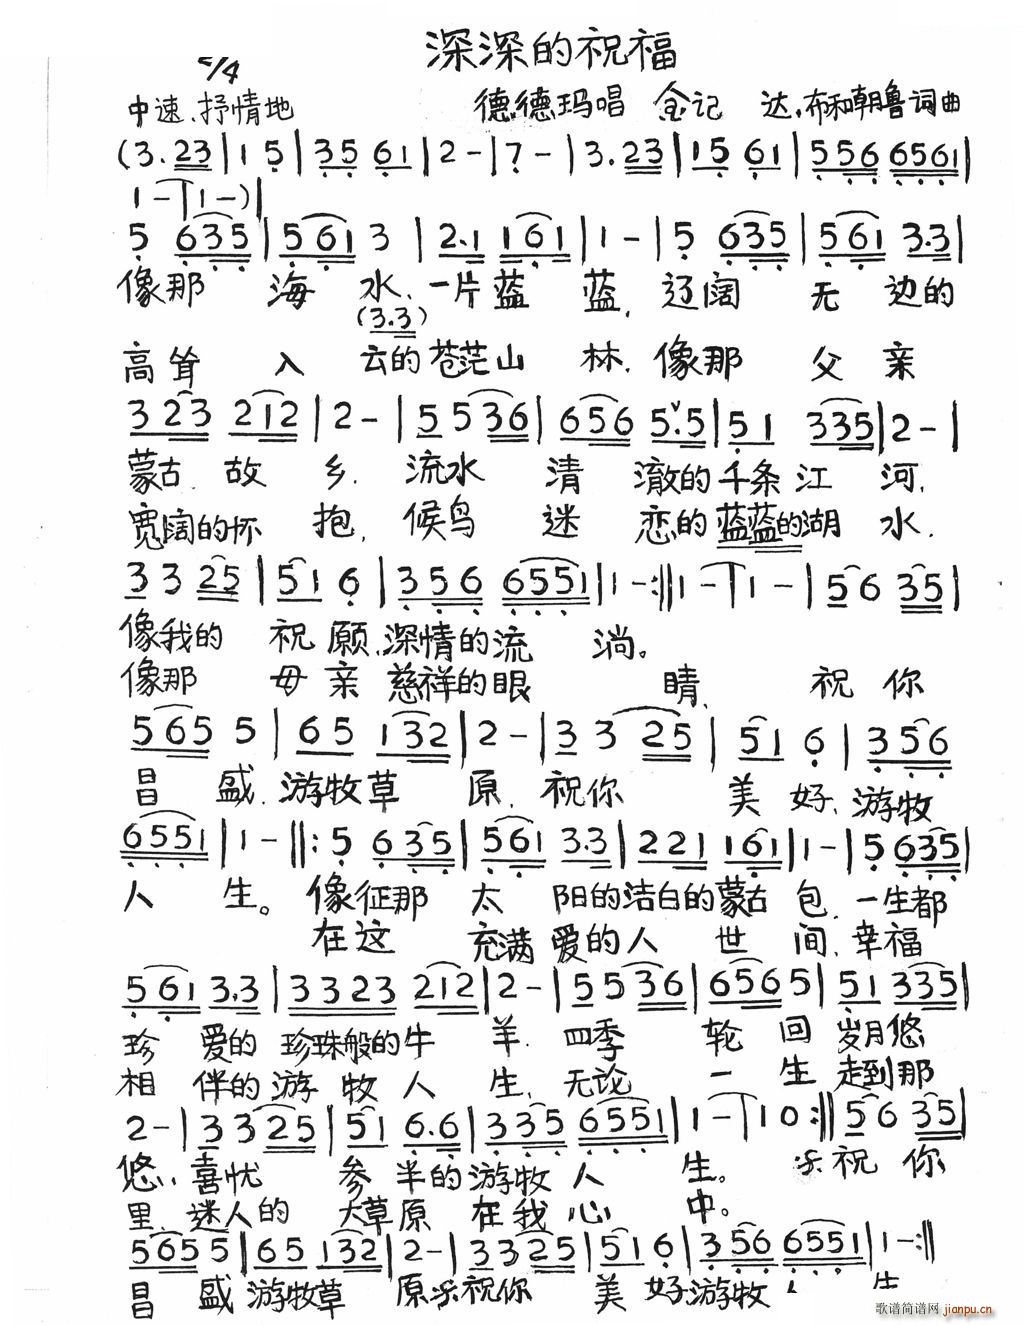 深深的祝福
2/4
中速、抒情地 德德玛唱 金记 达·布和朝鲁词曲
(3.23|15|35 61|2-|7-|3.23|15 61|556 6561|
1-|1-)|
5 635|561 3|2.1 161|1-|5 635|561 3.3|
像那 海 水,一片蓝 蓝,辽阔 无 边的
(3.3)
高耸 入 云的苍茫山 林,像那 父 亲
3 23 212|2-|5 5 36|656 5.5|51 335|2-|
蒙古 故 乡,流水 清 澈的千条江 河,
宽阔的怀 抱,候鸟 迷 恋的蓝蓝的湖 水,
3 3 25|51 6|356 6551|1-:||1-|1-|5 6 35|
像我的 祝 愿,深情的流 淌。
像那 母 亲 慈祥的眼 睛,祝 你
565 5|65 132|2-|3 3 25|51 6|356
昌 盛,游牧草 原,祝你 美 好,游牧
6551|1-||:5 635|561 3.3|221 161|1-|5 635|
人 生。像征那 太 阳的洁白的蒙古 包,一生都
在这 充满 爱的人 世 间,幸福
561 3.3|3323 212|2-|5 5 36|6565 5|51 335|
珍 爱的 珍珠般的牛 羊,四季 轮 回 岁月悠
相 伴的游 牧 人 生,无论 一 生 走到那
2-|3 3 25|51 6.6|335 6551|1-|10:||5 6 35|
悠,喜忧 参 半的游牧人 生。 祝 你
里,迷人的 大草原 在我心 中。
565 5|65 132|2-|33 25|51 6|356 6551|1-:||
昌 盛 游牧草 原 祝你 美 好游牧 生
歌谱简谱网 jianpu.cn